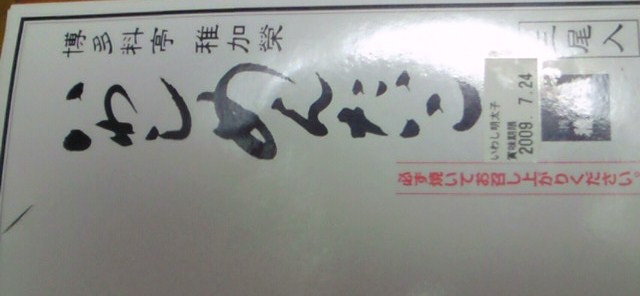 博多料亭 稚加榮
いわしめんたいこ
三尾入
いわし明太子
賞味期限
2009. 7.24
必ず焼いてお召し上がりください。